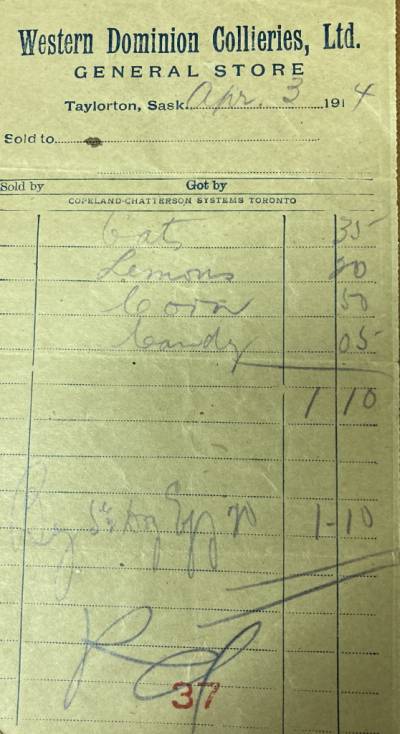 Western Dominion Collieries, Ltd.
GENERAL STORE
Taylorton, Sask. Apr. 3 1914
Sold to
Sold by Got by
COPELAND-CHATTERSON SYSTEMS TORONTO
Cats 35
Lemons 20
Corn 50
Candy 05
1 10
By 5½ Dz Egg 20 1-10
37